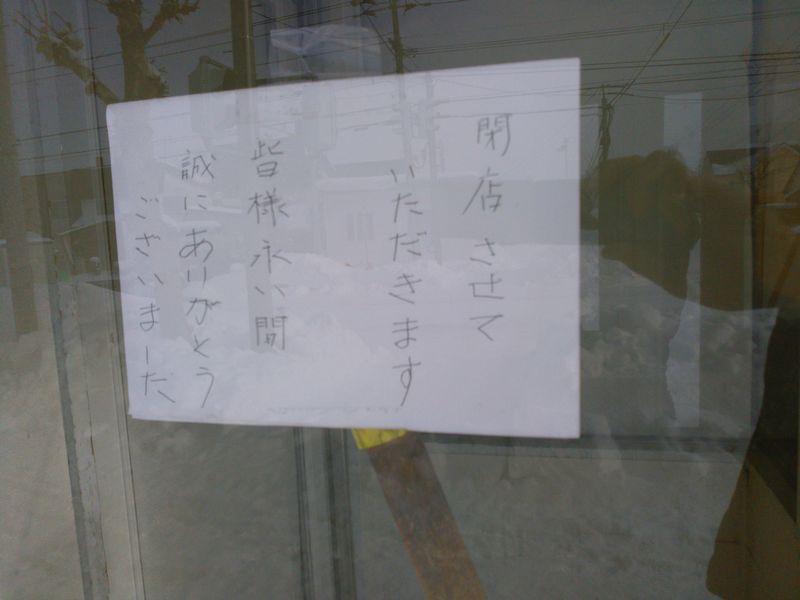 閉店させて
いただきます
皆様永い間
誠にありがとう
ございました